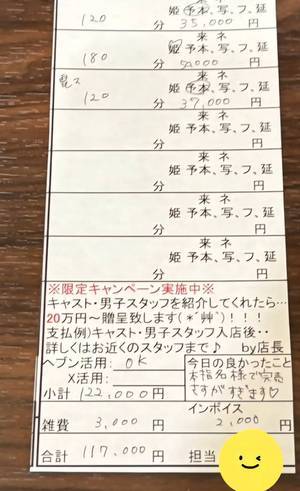 来 ネ
120 姫 予 本、写、フ、延
分 35,000 円
来 ネ
180 姫 予 本、写、フ、延
分 円
来 ネ
120 姫 予 本、写、フ、延
分 37,000 円
来 ネ
姫 予 本、写、フ、延
分 円
来 ネ
姫 予 本、写、フ、延
分 円
来 ネ
姫 予 本、写、フ、延
分 円
※限定キャンペーン実施中※
キャスト・男子スタッフを紹介してくれたら…
20万円〜贈呈致します(*´艸`)!!!
支払例)キャスト・男子スタッフ入店後・・
詳しくはお近くのスタッフまで♪ by店長
ヘブン活用: OK 今日の良かったこと
X活用: 本指名様で完売
小計 122,000 円 さすがすぎます♡
インボイス
雑費 3,000 円 2,000 円
合計 117,000 円 担当